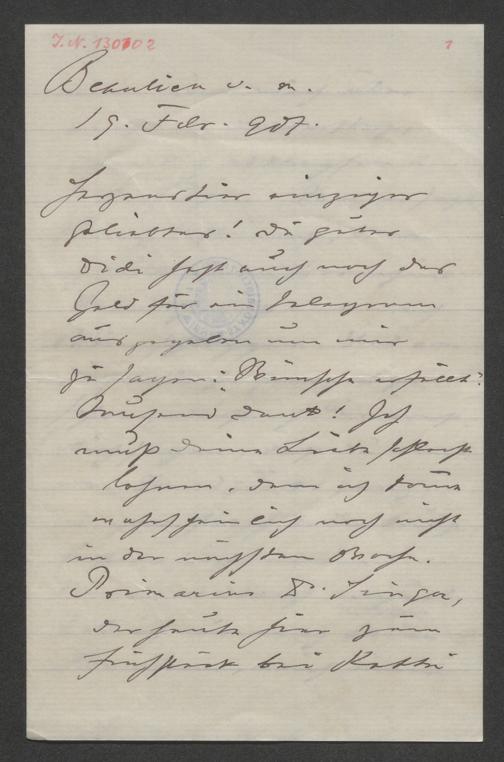 J.N. 130102
1
Beaulieu s. m.
19. Febr. 907.
einziger
geliebter! Du guter
Didi hast auch noch das
Geld für ein Telegramm
ausgegeben um mir
zu sagen: Wünsche erfüllt!
Tausend Dank! Ich
muß deine Liebe schlecht
lohnen, denn ich komme
wahrscheinlich noch nicht
in der nächsten Woche.
Primarius Dr. Singer,
der heute hier zum
Frühstück bei